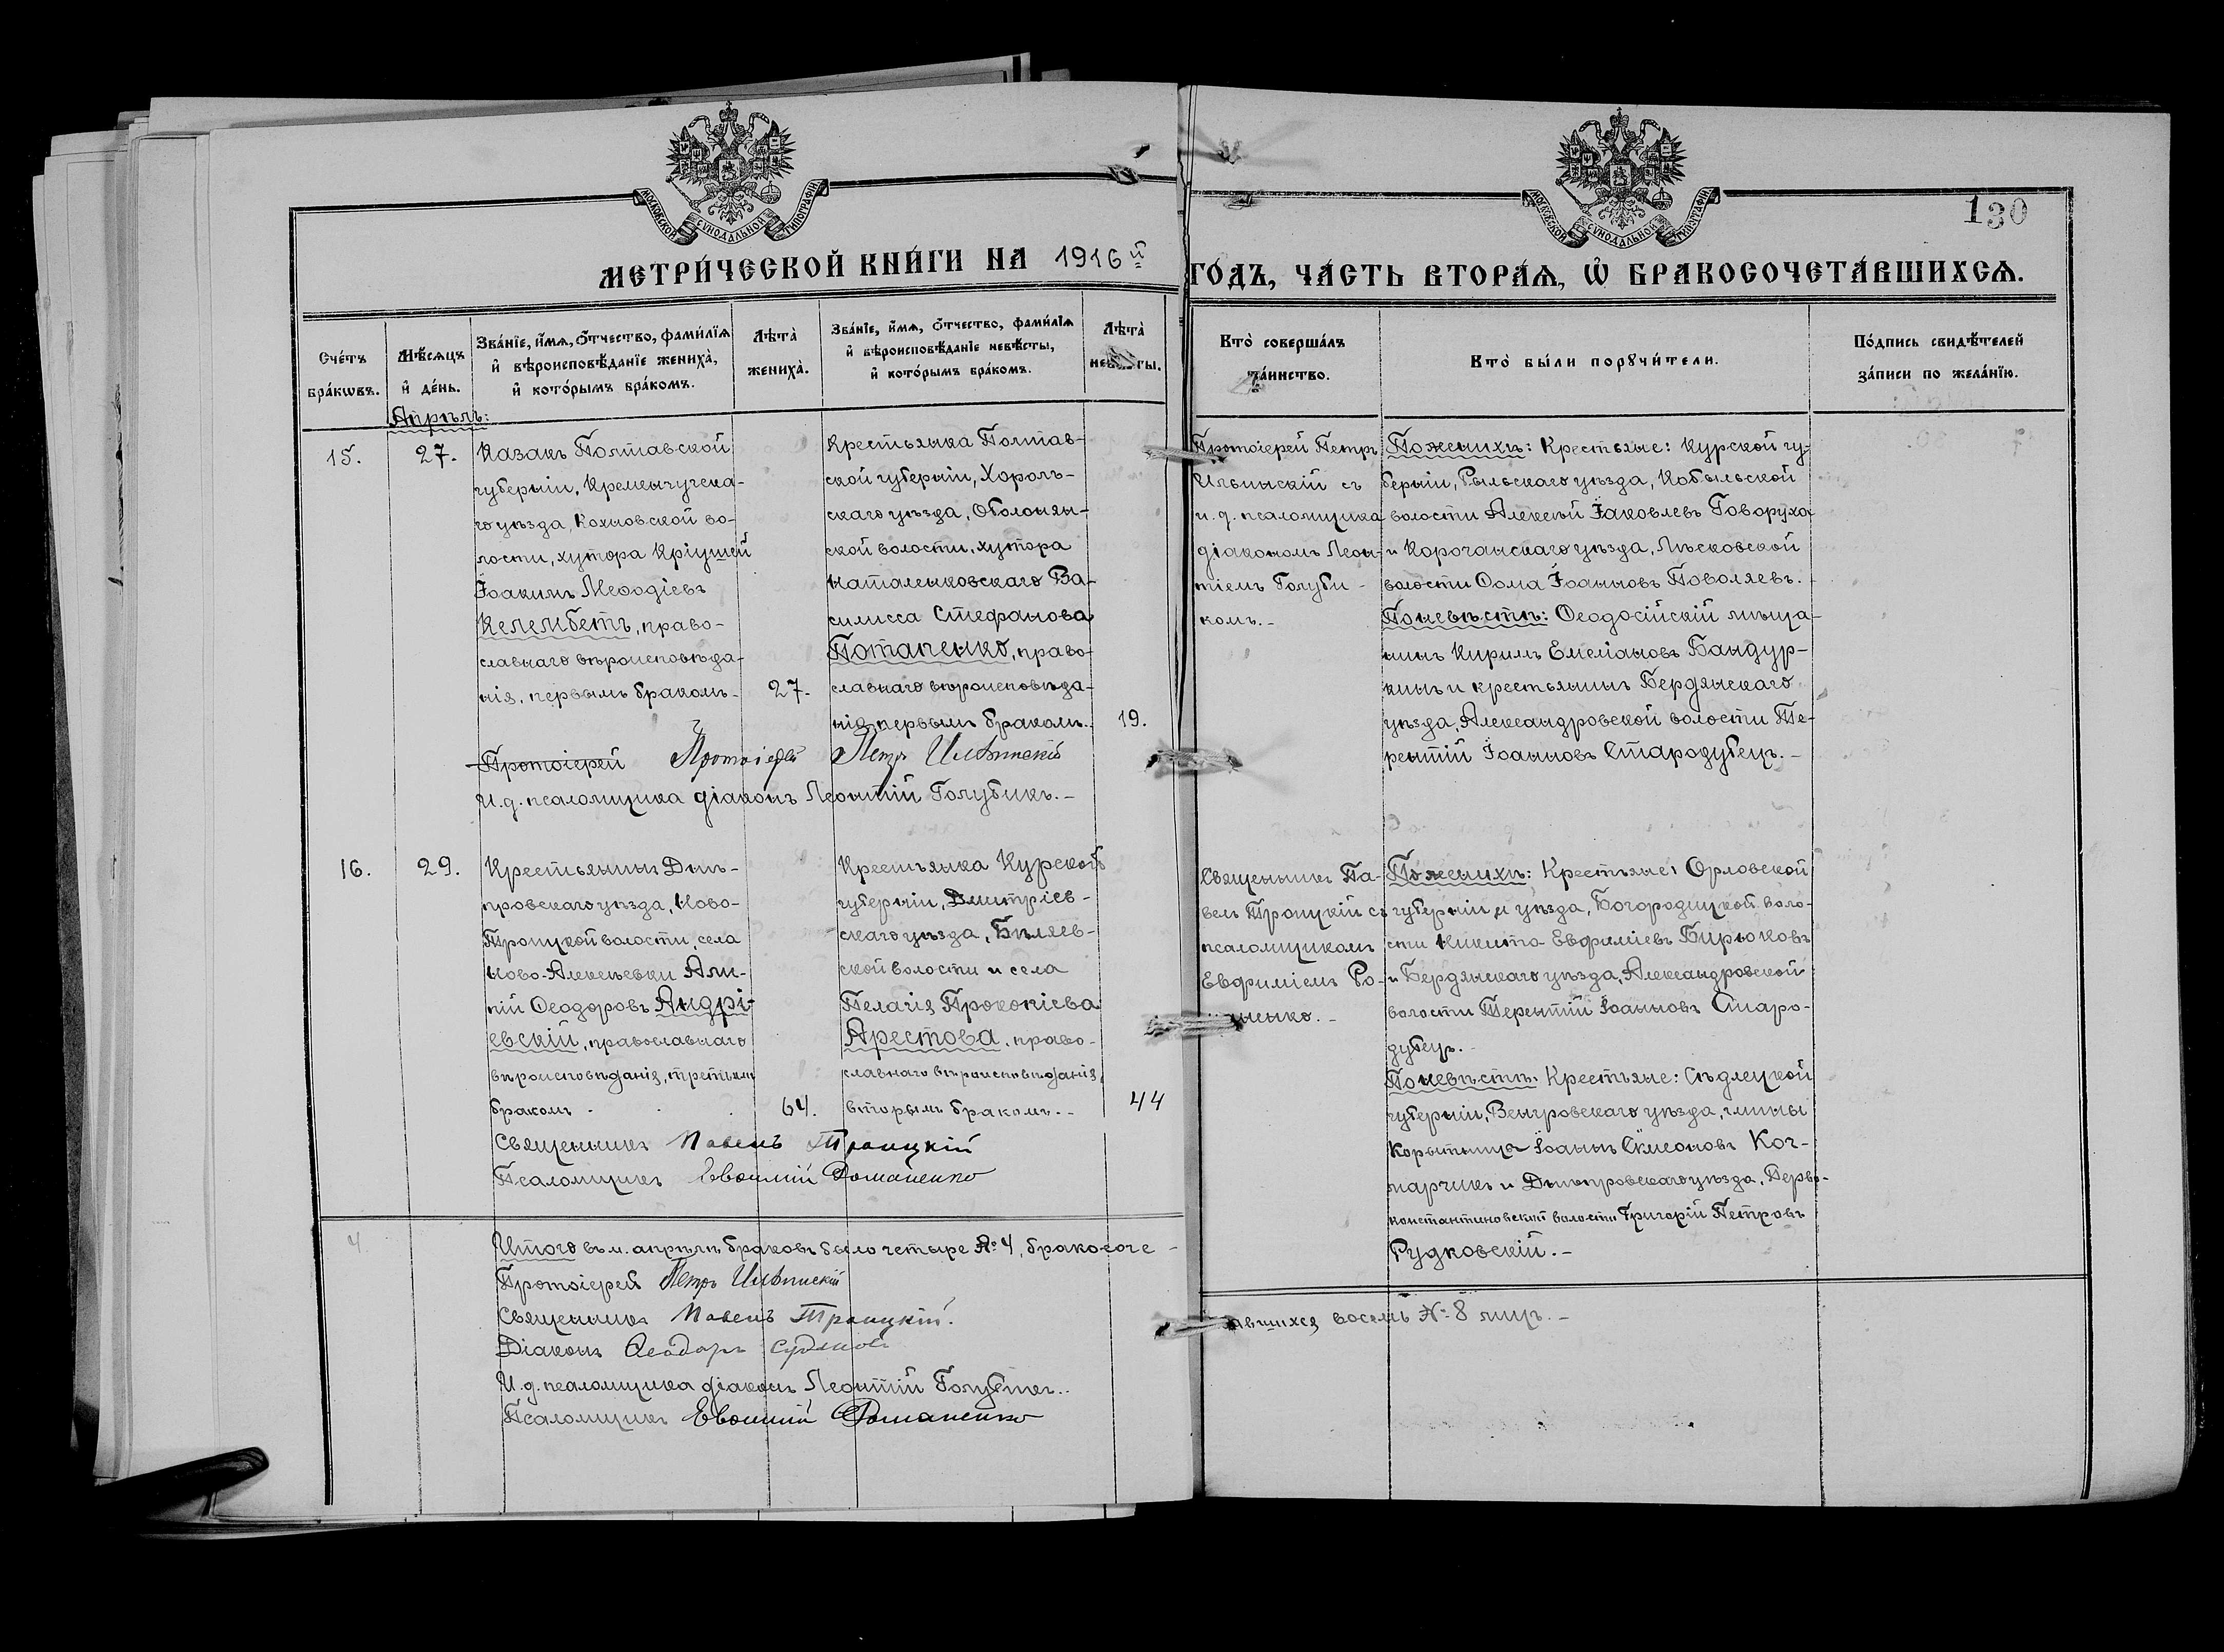 130
МОСКОВСКОЙ СѴНОДАЛЬНОЙ ТИПОГРАФІИ
МОСКОВСКОЙ СѴНОДАЛЬНОЙ ТИПОГРАФІИ
МЕТРИ́ЧЕСКОЙ КНИ́ГИ НА 1916й ГО́ДЪ, ЧА́СТЬ ВТОРА́Ѧ, Ѡ҆ БРАКОСОЧЕТА́ВШИХСѦ.
Сче́тъ
бра́кѡвъ.
Мѣ́сѧцъ
и҆ де́нь.
Зва́нїе, и҆́мѧ, ѻ҆́тчество, фами́лїѧ
и҆ вѣроисповѣ́данїе жениха̀,
и҆ кото́рымъ бра́комъ.
Лѣта̀
жениха̀.
Зва́нїе, и҆́мѧ, ѻ҆́тчество, фами́лїѧ
и҆ вѣроисповѣ́данїе невѣ́сты,
и҆ кото́рымъ бра́комъ.
Лѣта̀
невѣ́сты.
Кто̀ соверша́лъ
та́инство.
Кто̀ бы́ли порꙋчи́тели.
По́дпись свидѣ́телей
за́писи по жела́нїю.
Апрѣль:
15.
27.
Казакъ Полтавской
губерніи, Кременчугска-
го уѣзда, Кохновской во-
лости, хутора Кріушей
Іоакимъ Меѳодіевъ
Келембетъ, право-
славнаго вѣроисповѣда-
нія, первымъ бракомъ.
27.
Крестьянка Полтав-
ской губерніи, Хороль-
скаго уѣзда, Оболонян-
ской волости, хутора
Наталенковскаго Ва-
силисса Стефанова
Потапенко, право-
славнаго вѣроисповѣда-
нія, первымъ бракомъ.
19.
Протоіерей Протоіерей Петръ Ильинскій
И.д. псаломщика діаконъ Леонтій Голубикъ.-
Протоіерей Петръ
Ильинскій съ
и.д. псаломщика
діакономъ Леон-
тіемъ Голуби-
комъ.-
По женихѣ: Крестьяне: Курской гу-
берніи, Рыльскаго уѣзда, Кобыльской
волости Алексѣй Іаковлевъ Говоруха
и Корочанскаго уѣзда, Лѣсковской
волости Ѳома Іоанновъ Поволяевъ.
По невѣстѣ: Ѳеодосійскій мѣща-
нинъ Кирилъ Емеліановъ Бандур-
кинъ и крестьянинъ Бердянскаго
уѣзда, Александровской волости Те-
рентій Іоанновъ Стародубецъ.-
16.
29.
Крестьянинъ Днѣ-
провскаго уѣзда, Ново-
Троицкой волости, села
Ново-Алексѣевки Али-
пій Ѳеодоровъ Андрі-
евскій, православнаго
вѣроисповѣданія, третьимъ
бракомъ
64.
Крестьянка Курской
губерніи, Дмитріев-
скаго уѣзда, Бѣляев-
ской волости и села
Пелагія Прокопіева
Арестова, право-
славнаго вѣроисповѣданія,
вторымъ бракомъ.-
44
Священникъ Павелъ Троицкій
Псаломщикъ Евѳимій Романенко
Священникъ Па-
велъ Троицкій съ
псаломщикомъ
Евфиміемъ Ро-
маненко.-
По женихѣ: Крестьяне: Орловской
губерніи и уѣзда, Богородицкой воло-
сти Никита Евфиміевъ Бирюковъ
и Бердянскаго уѣзда, Александровской
волости Терентій Іоанновъ Старо-
дубецъ.-
По невѣстѣ: Крестьяне: Сѣдлецкой
губерніи, Венгровскаго уѣзда, гмины
Корытница Іоаннъ Симеоновъ Коч-
марчикъ и Днѣпровскаго уѣзда, Перво-
константиновской волости Григорій Петровъ
Рудковскій.-
4
Итого въ м. апрѣлѣ браковъ было четыре № 4, бракосоче-
тавшихся восемь № 8 лицъ.-
Протоіерей Петръ Ильинскій
Священникъ Павелъ Троицкій.
Діаконъ Ѳеодоръ
И.д. псаломщика діаконъ Леонтій Голубикъ..
Псаломщикъ Евѳимій Романенко